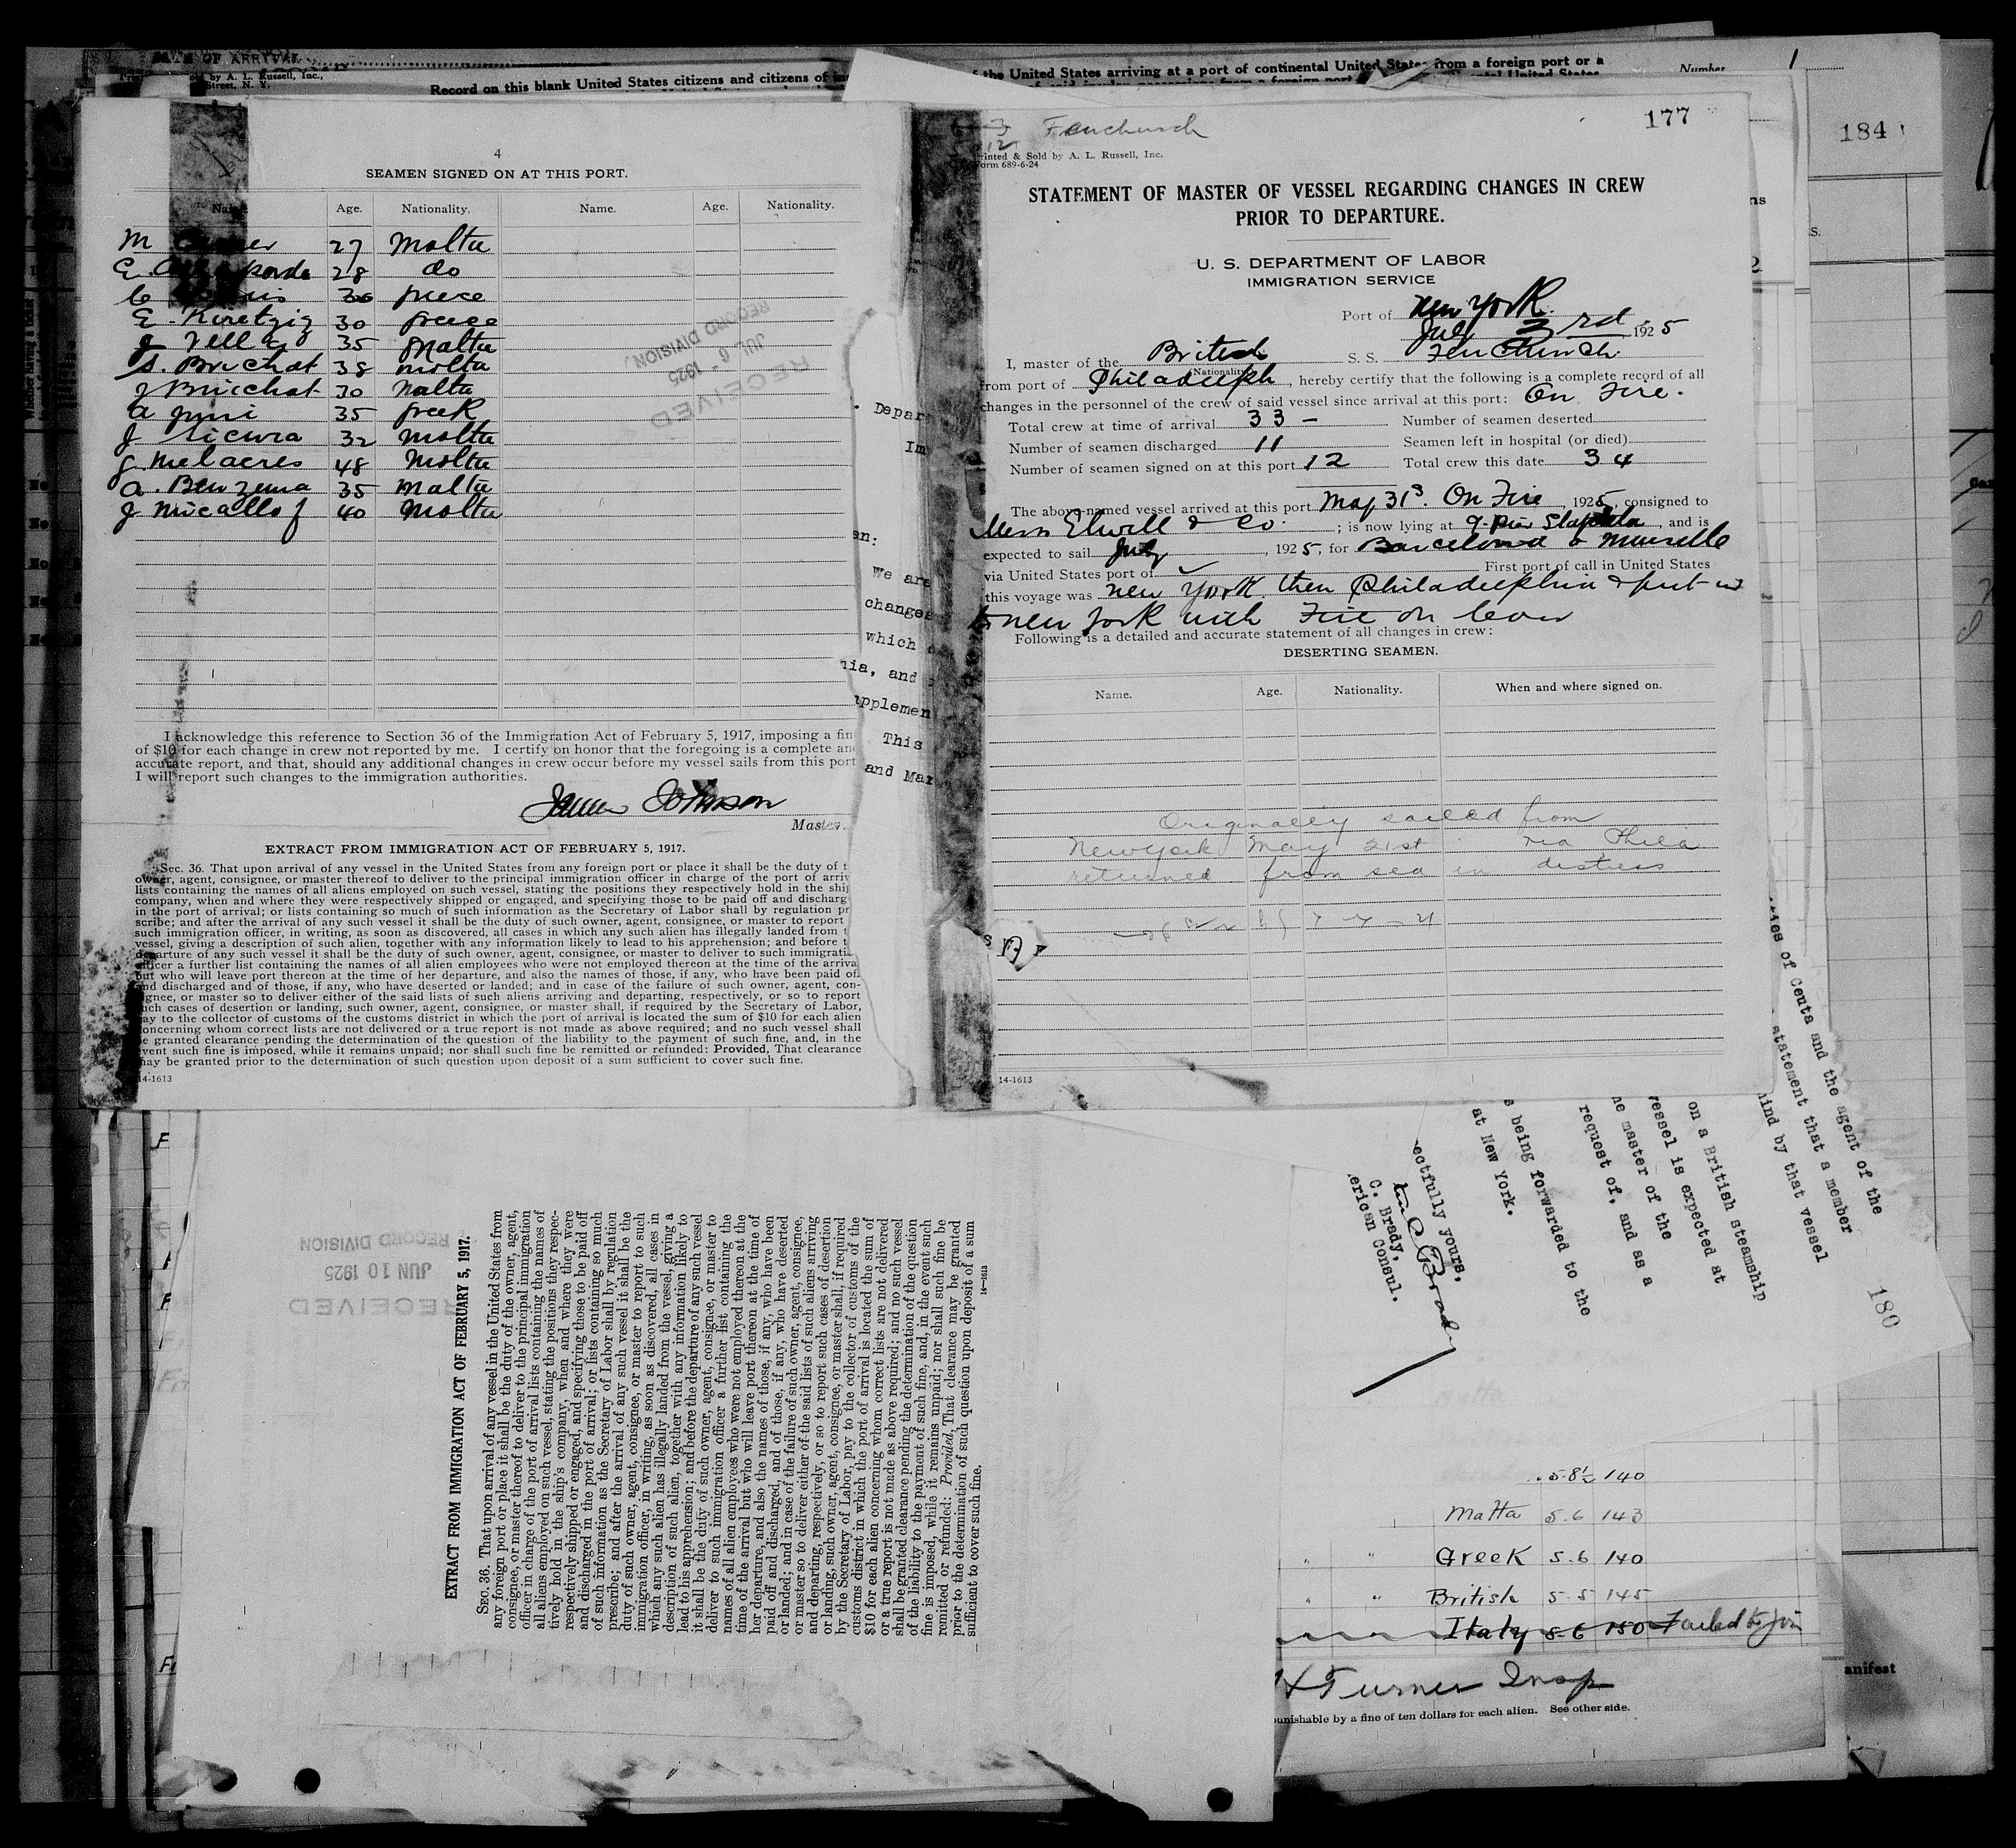 DATE OF ARRIVAL
old by A. L. Russell, Inc.,
Street, N. Y.
Record on this blank United States citizens and citizens of
the United States arriving at a port of continental United States from a foreign port or a
Number
1
184
4
SEAMEN SIGNED ON AT THIS PORT.
Name. Age. Nationality. Name. Age. Nationality.
M 27 Malta
E. 28 do
C 30 Greece
E. Kiretzig 30 Greece
J Vella 35 Malta
S. Brichat 38 Malta
J Bricchat 30 Malta
a 35 Greek
J Licura 32 Malta
G Melacres 48 Malta
a. Benzema 35 Malta
J Micallef 40 Malta
RECEIVED
JUL 6 - 1925
RECORD DIVISION
I acknowledge this reference to Section 36 of the Immigration Act of February 5, 1917, imposing a fin
of $10 for each change in crew not reported by me. I certify on honor that the foregoing is a complete an
accurate report, and that, should any additional changes in crew occur before my vessel sails from this port
I will report such changes to the immigration authorities.
James Johnson
Master.
EXTRACT FROM IMMIGRATION ACT OF FEBRUARY 5, 1917.
Sec. 36. That upon arrival of any vessel in the United States from any foreign port or place it shall be the duty of t
owner, agent, consignee, or master thereof to deliver to the principal immigration officer in charge of the port of arriv
lists containing the names of all aliens employed on such vessel, stating the positions they respectively hold in the ship
company, when and where they were respectively shipped or engaged, and specifying those to be paid off and discharg
in the port of arrival; or lists containing so much of such information as the Secretary of Labor shall by regulation pr
scribe; and after the arrival of any such vessel it shall be the duty of such owner, agent, consignee, or master to report
such immigration officer, in writing, as soon as discovered, all cases in which any such alien has illegally landed from
vessel, giving a description of such alien, together with any information likely to lead to his apprehension; and before t
departure of any such vessel it shall be the duty of such owner, agent, consignee, or master to deliver to such immigratio
officer a further list containing the names of all alien employees who were not employed thereon at the time of the arriva
but who will leave port thereon at the time of her departure, and also the names of those, if any, who have been paid of
and discharged and of those, if any, who have deserted or landed; and in case of the failure of such owner, agent, con-
signee, or master so to deliver either of the said lists of such aliens arriving and departing, respectively, or so to report
such cases of desertion or landing, such owner, agent, consignee, or master shall, if required by the Secretary of Labor,
pay to the collector of customs of the customs district in which the port of arrival is located the sum of $10 for each alien
concerning whom correct lists are not delivered or a true report is not made as above required; and no such vessel shall
be granted clearance pending the determination of the question of the liability to the payment of such fine, and, in the
event such fine is imposed, while it remains unpaid; nor shall such fine be remitted or refunded: Provided, That clearance
may be granted prior to the determination of such question upon deposit of a sum sufficient to cover such fine.
14-1613
Depar
Im
en:
We are
changes
which
nia, and
upplemen
This
and Mar
177
Fenchurch
Printed & Sold by A. L. Russell, Inc.
Form 689-6-24
STATEMENT OF MASTER OF VESSEL REGARDING CHANGES IN CREW
PRIOR TO DEPARTURE.
U. S. DEPARTMENT OF LABOR
IMMIGRATION SERVICE
Port of New York.
July 3rd 1925
I, master of the British S. S. Fenchurch
(Nationality)
from port of Philadelph, hereby certify that the following is a complete record of all
changes in the personnel of the crew of said vessel since arrival at this port: On Fire.
Total crew at time of arrival 33 - Number of seamen deserted
Number of seamen discharged 11 Seamen left in hospital (or died)
Number of seamen signed on at this port 12 Total crew this date 34
The above-named vessel arrived at this port May 31s. On Fire, 1925, consigned to
Messrs Elwell & Co. ; is now lying at 9 Pier Stapleton, and is
expected to sail July, 1925, for Barcelona & Marseille
via United States port of First port of call in United States
this voyage was New York. then Philadelphia & put in
to New York with Fire on board
Following is a detailed and accurate statement of all changes in crew:
DESERTING SEAMEN.
Name. Age. Nationality. When and where signed on.
Originally sailed from
New York May 21st via Phila
returned from sea in distress
14-1613
ties of Ceuta and the agent of the
statement that a member
hind by that vessel
on a British steamship
vessel is expected at
he master of the
request of, and as a
s being forwarded to the
at New York.
ectfully yours,
C. Brady,
erican Consul.
180
RECEIVED
JUN 10 1925
RECORD DIVISION
EXTRACT FROM IMMIGRATION ACT OF FEBRUARY 5, 1917.
SEC. 36. That upon arrival of any vessel in the United States from
any foreign port or place it shall be the duty of the owner, agent,
consignee, or master thereof to deliver to the principal immigration
officer in charge of the port of arrival lists containing the names of
all aliens employed on such vessel, stating the positions they respec-
tively hold in the ship's company, when and where they were
respectively shipped or engaged, and specifying those to be paid off
and discharged in the port of arrival; or lists containing so much
of such information as the Secretary of Labor shall by regulation
prescribe; and after the arrival of any such vessel it shall be the
duty of such owner, agent, consignee, or master to report to such
immigration officer, in writing, as soon as discovered, all cases in
which any such alien has illegally landed from the vessel, giving a
description of such alien, together with any information likely to
lead to his apprehension; and before the departure of any such vessel
it shall be the duty of such owner, agent, consignee, or master to
deliver to such immigration officer a further list containing the
names of all alien employees who were not employed thereon at the
time of the arrival but who will leave port thereon at the time of
her departure, and also the names of those, if any, who have been
paid off and discharged, and of those, if any, who have deserted
or landed; and in case of the failure of such owner, agent, consignee,
or master so to deliver either of the said lists of such aliens arriving
and departing, respectively, or so to report such cases of desertion
or landing, such owner, agent, consignee, or master shall, if required
by the Secretary of Labor, pay to the collector of customs of the
customs district in which the port of arrival is located the sum of
$10 for each alien concerning whom correct lists are not delivered
or a true report is not made as above required; and no such vessel
shall be granted clearance pending the determination of the question
of the liability to the payment of such fine, and, in the event such
fine is imposed, while it remains unpaid; nor shall such fine be
remitted or refunded: Provided, That clearance may be granted
prior to the determination of such question upon deposit of a sum
sufficient to cover such fine.
14-1613
5-8½ 140
Malta 5-6 143
" " Greek 5-6 140
" " British 5-5 145
Italy 5-6 150 Failed to join
H Turner Insp
punishable by a fine of ten dollars for each alien. See other side.
anifest